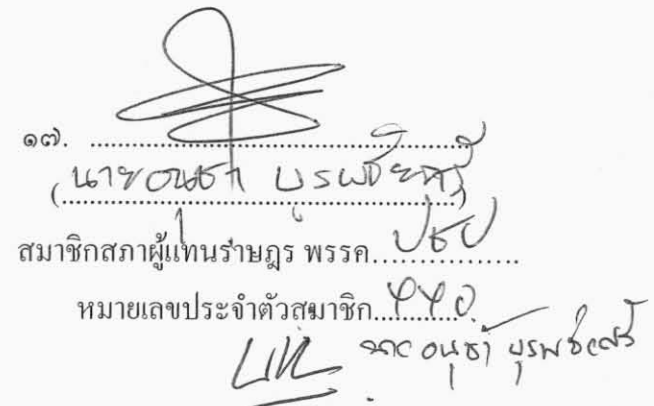 ๑๗. ..........
(นายอนุชา บูรพชัยศรี)
สมาชิกสภาผู้แทนราษฎร พรรค ปชป
หมายเลขประจำตัวสมาชิก
อนุชา บูรพชัยศรี